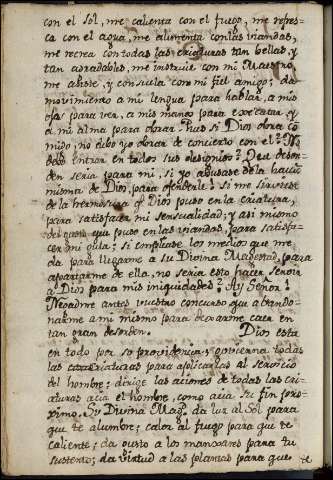 con el Sol, me calienta con el fuego, me refres-
ca con el agua, me alimenta con las viandas,
me recrea con todas las criaturas tan bellas, y
tan agradables, me instruie con mi Maestro,
me asiste, y consuela con mi fiel amigo; da
movimiento a mi lengua para hablar, a mis
ojos para ver, a mis manos para executar, y
a mi alma para obrar. Pues si Dios obra co-
migo, no debo yo obrar de concierto con el? No
debo entrar en todos sus designios? Que desor-
den seria para mi, si yo abusase de la
misma de Dios, para ofenderle? Si me sirviese
de la hermosura, qe Dios puso en la criatura,
para satisfacer mi sensualidad; y asi mismo
del gusto que puso en las viandas, para satisfa-
cer mi gula? si emplease los medios que me
da para llegarme a su Divina Magestad, para
apartarme de ella, no seria esto hacer servir
a Dios para mis iniquidades? Ay Señor!
Negadme antes vuestro concurso que abando-
narme a mi mismo para dexarme caer en
tan gran desorden. Dios esta
en todo por su providencia, y govierna todas
las criaturas para aplicarlas al servicio
del hombre; dirige las aciones de todas las cri-
aturas acia el hombre, como acia su fin pro-
ximo. Su Divina Magd. da luz al Sol para
que te alumbre; calor al fuego para que te
caliente; da gusto a los manxares para tu
sustento; da virtud a las plantas para que te